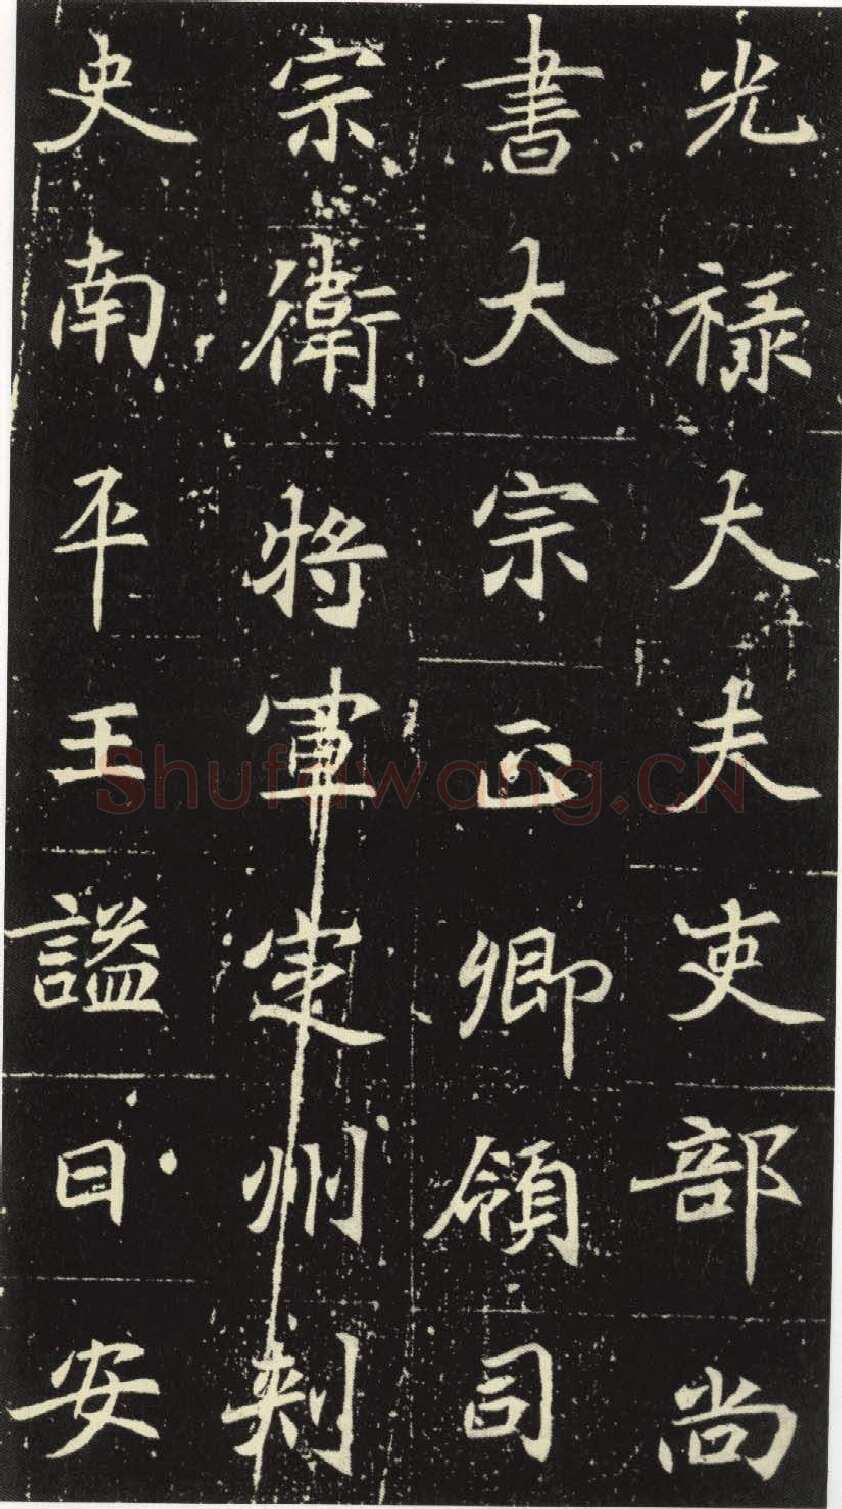 光禄大夫吏部尚
書大宗正卿領司
宗衛將軍定州刺
史南平王謚曰安
Shufawang.CN